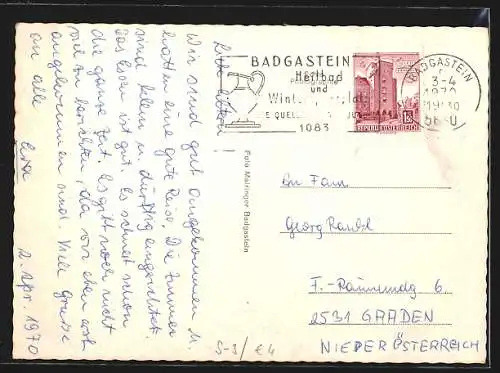 Wir sind gut angekommen u.
hatten eine gute Reise. Die Zimmer
sind klein u. dürftig eingerichtet.
Das Essen ist gut. Es schneit schon
die ganze Zeit. Es gibt noch nicht
viel zu berichten, da wir eben erst
angekommen sind. Viele Grüsse
an alle
2. Apr. 1970
Foto Mairinger Badgastein
BADGASTEIN
Heilbad
und
1083
REPUBLIK ÖSTERREICH
BADGASTEIN
3-4
1970
An Fam
Georg
6
2531 GAADEN
NIEDERÖSTERREICH
S-3/ €4